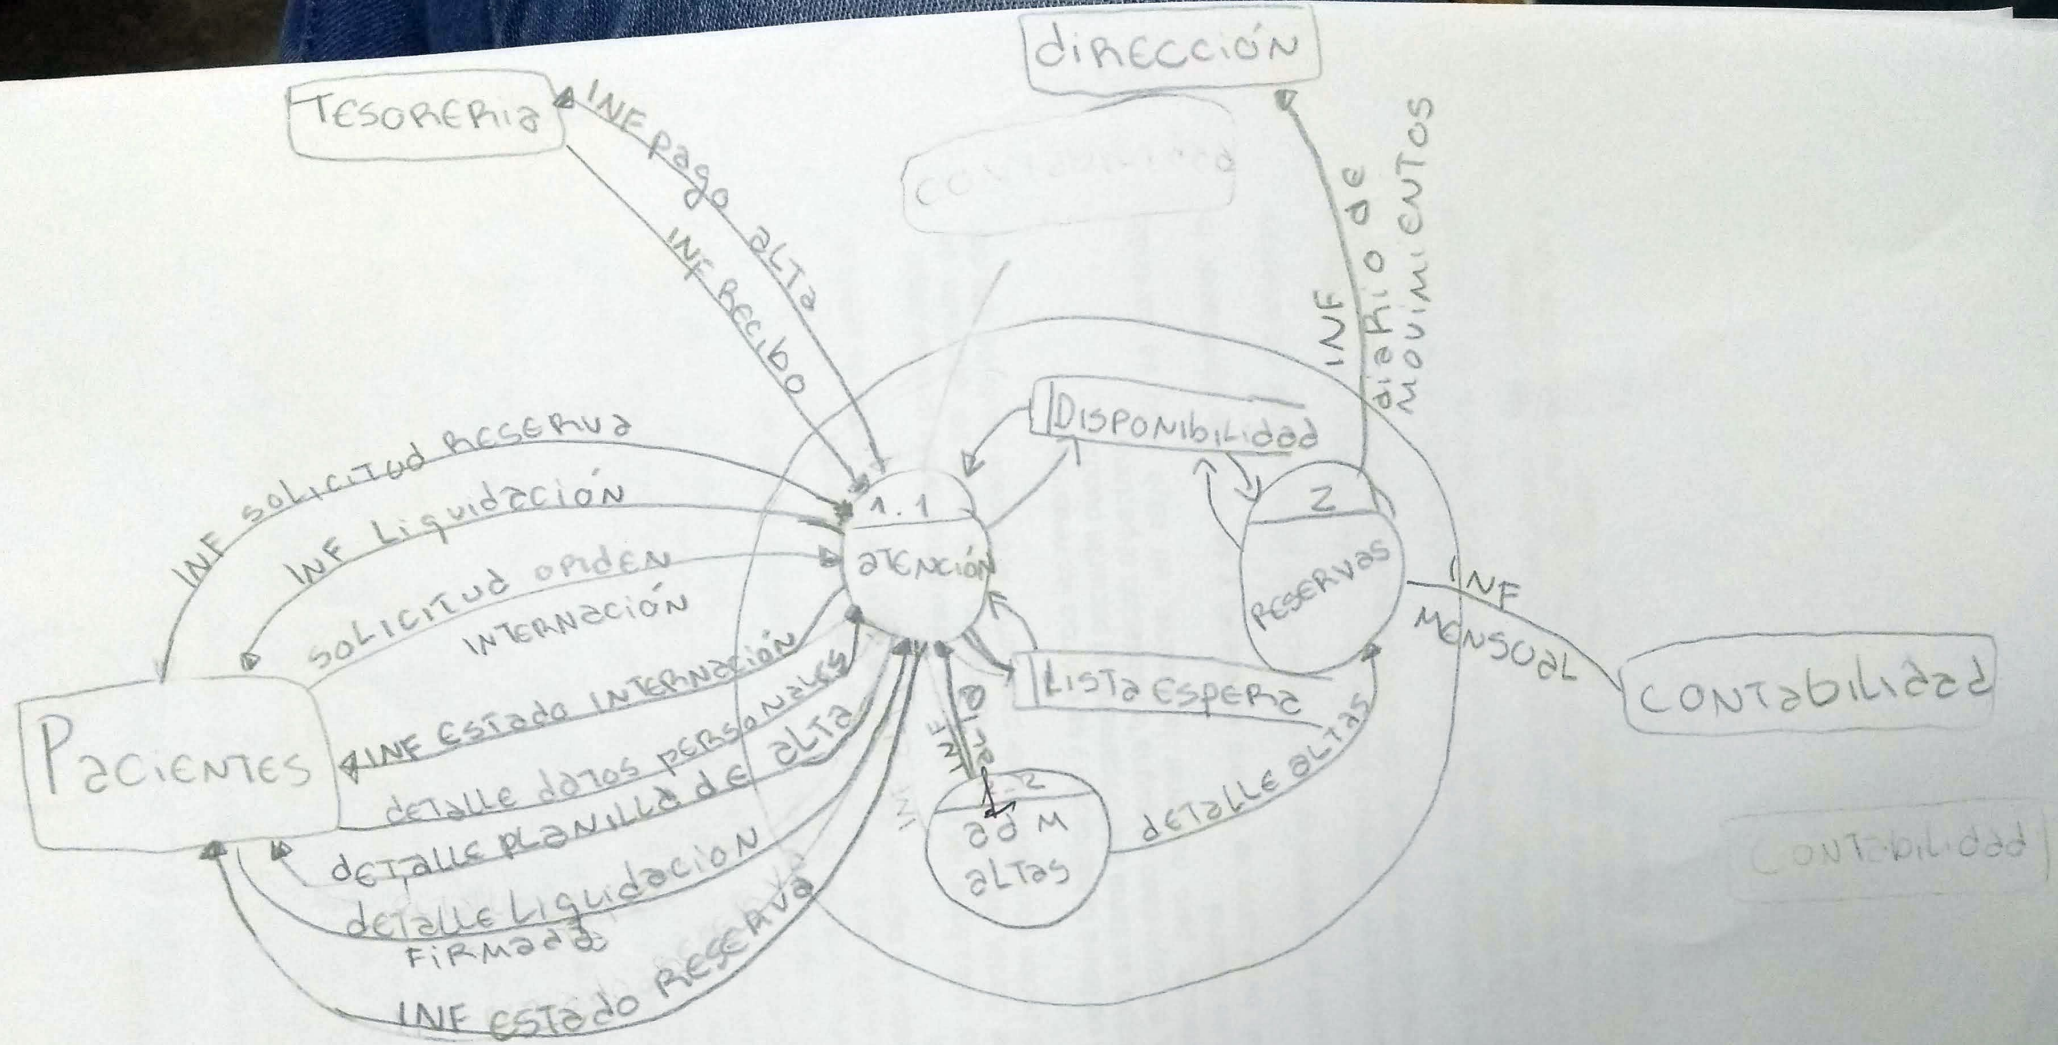 dirección
TESORERIA
INF pago alta
INF RECIBO
INF diario de
MOVIMIENTOS
DISPONIBILIDAD
INF SOLICITUD RESERVA
INF Liquidación
SOLICITUD ORDEN
INTERNACIÓN
1.1
ATENCIÓN
2
RESERVAS
INF
MENSUAL
CONTABILIDAD
LISTA ESPERA
PACIENTES
INF ESTADO INTERNACIÓN
detalle datos personales
detalle planilla de alta
detalle Liquidacion
FIRMADA
INF ESTADO RESERVA
INF
adm
altas
detalle altas
CONTABILIDAD